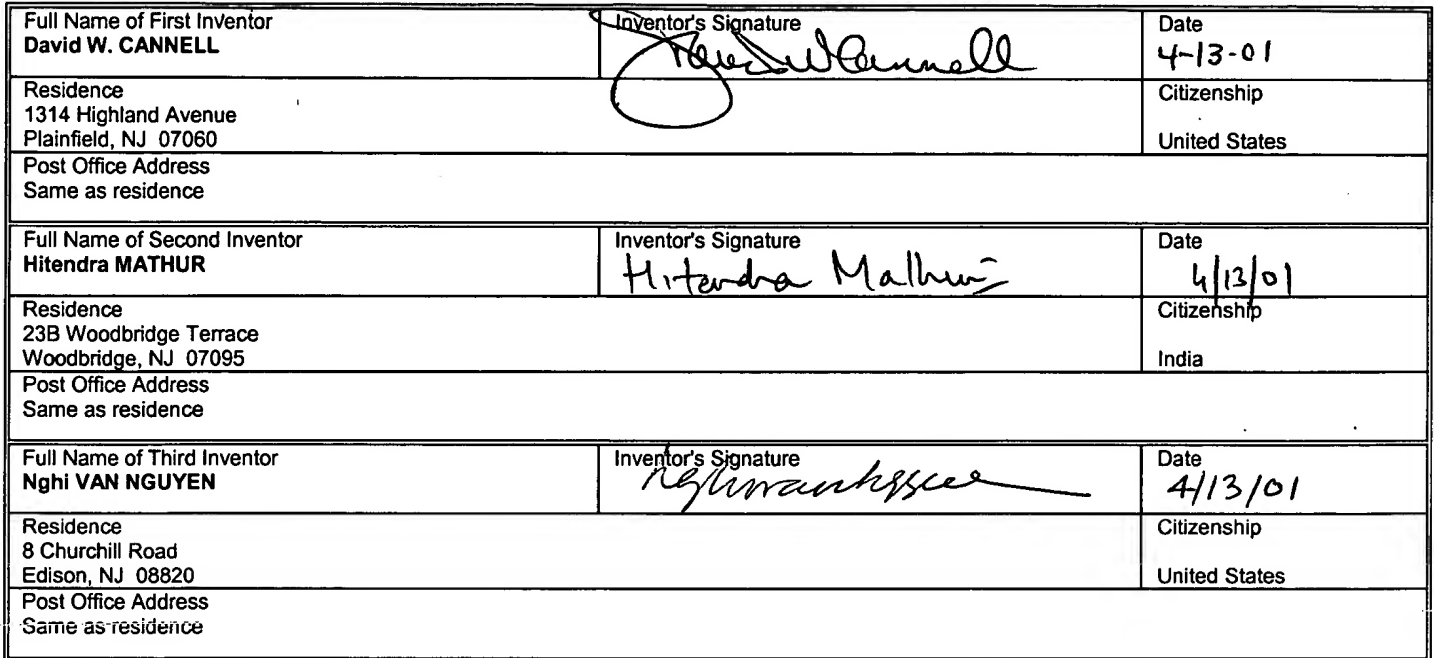 Full Name of First Inventor
David W. CANNELL
Inventor's Signature
David W Cannell
Date
4-13-01
Residence
1314 Highland Avenue
Plainfield, NJ 07060
Citizenship
United States
Post Office Address
Same as residence
Full Name of Second Inventor
Hitendra MATHUR
Inventor's Signature
Hitendra Mathur
Date
4/13/01
Residence
23B Woodbridge Terrace
Woodbridge, NJ 07095
Citizenship
India
Post Office Address
Same as residence
Full Name of Third Inventor
Nghi VAN NGUYEN
Inventor's Signature
Date
4/13/01
Residence
8 Churchill Road
Edison, NJ 08820
Citizenship
United States
Post Office Address
Same as residence